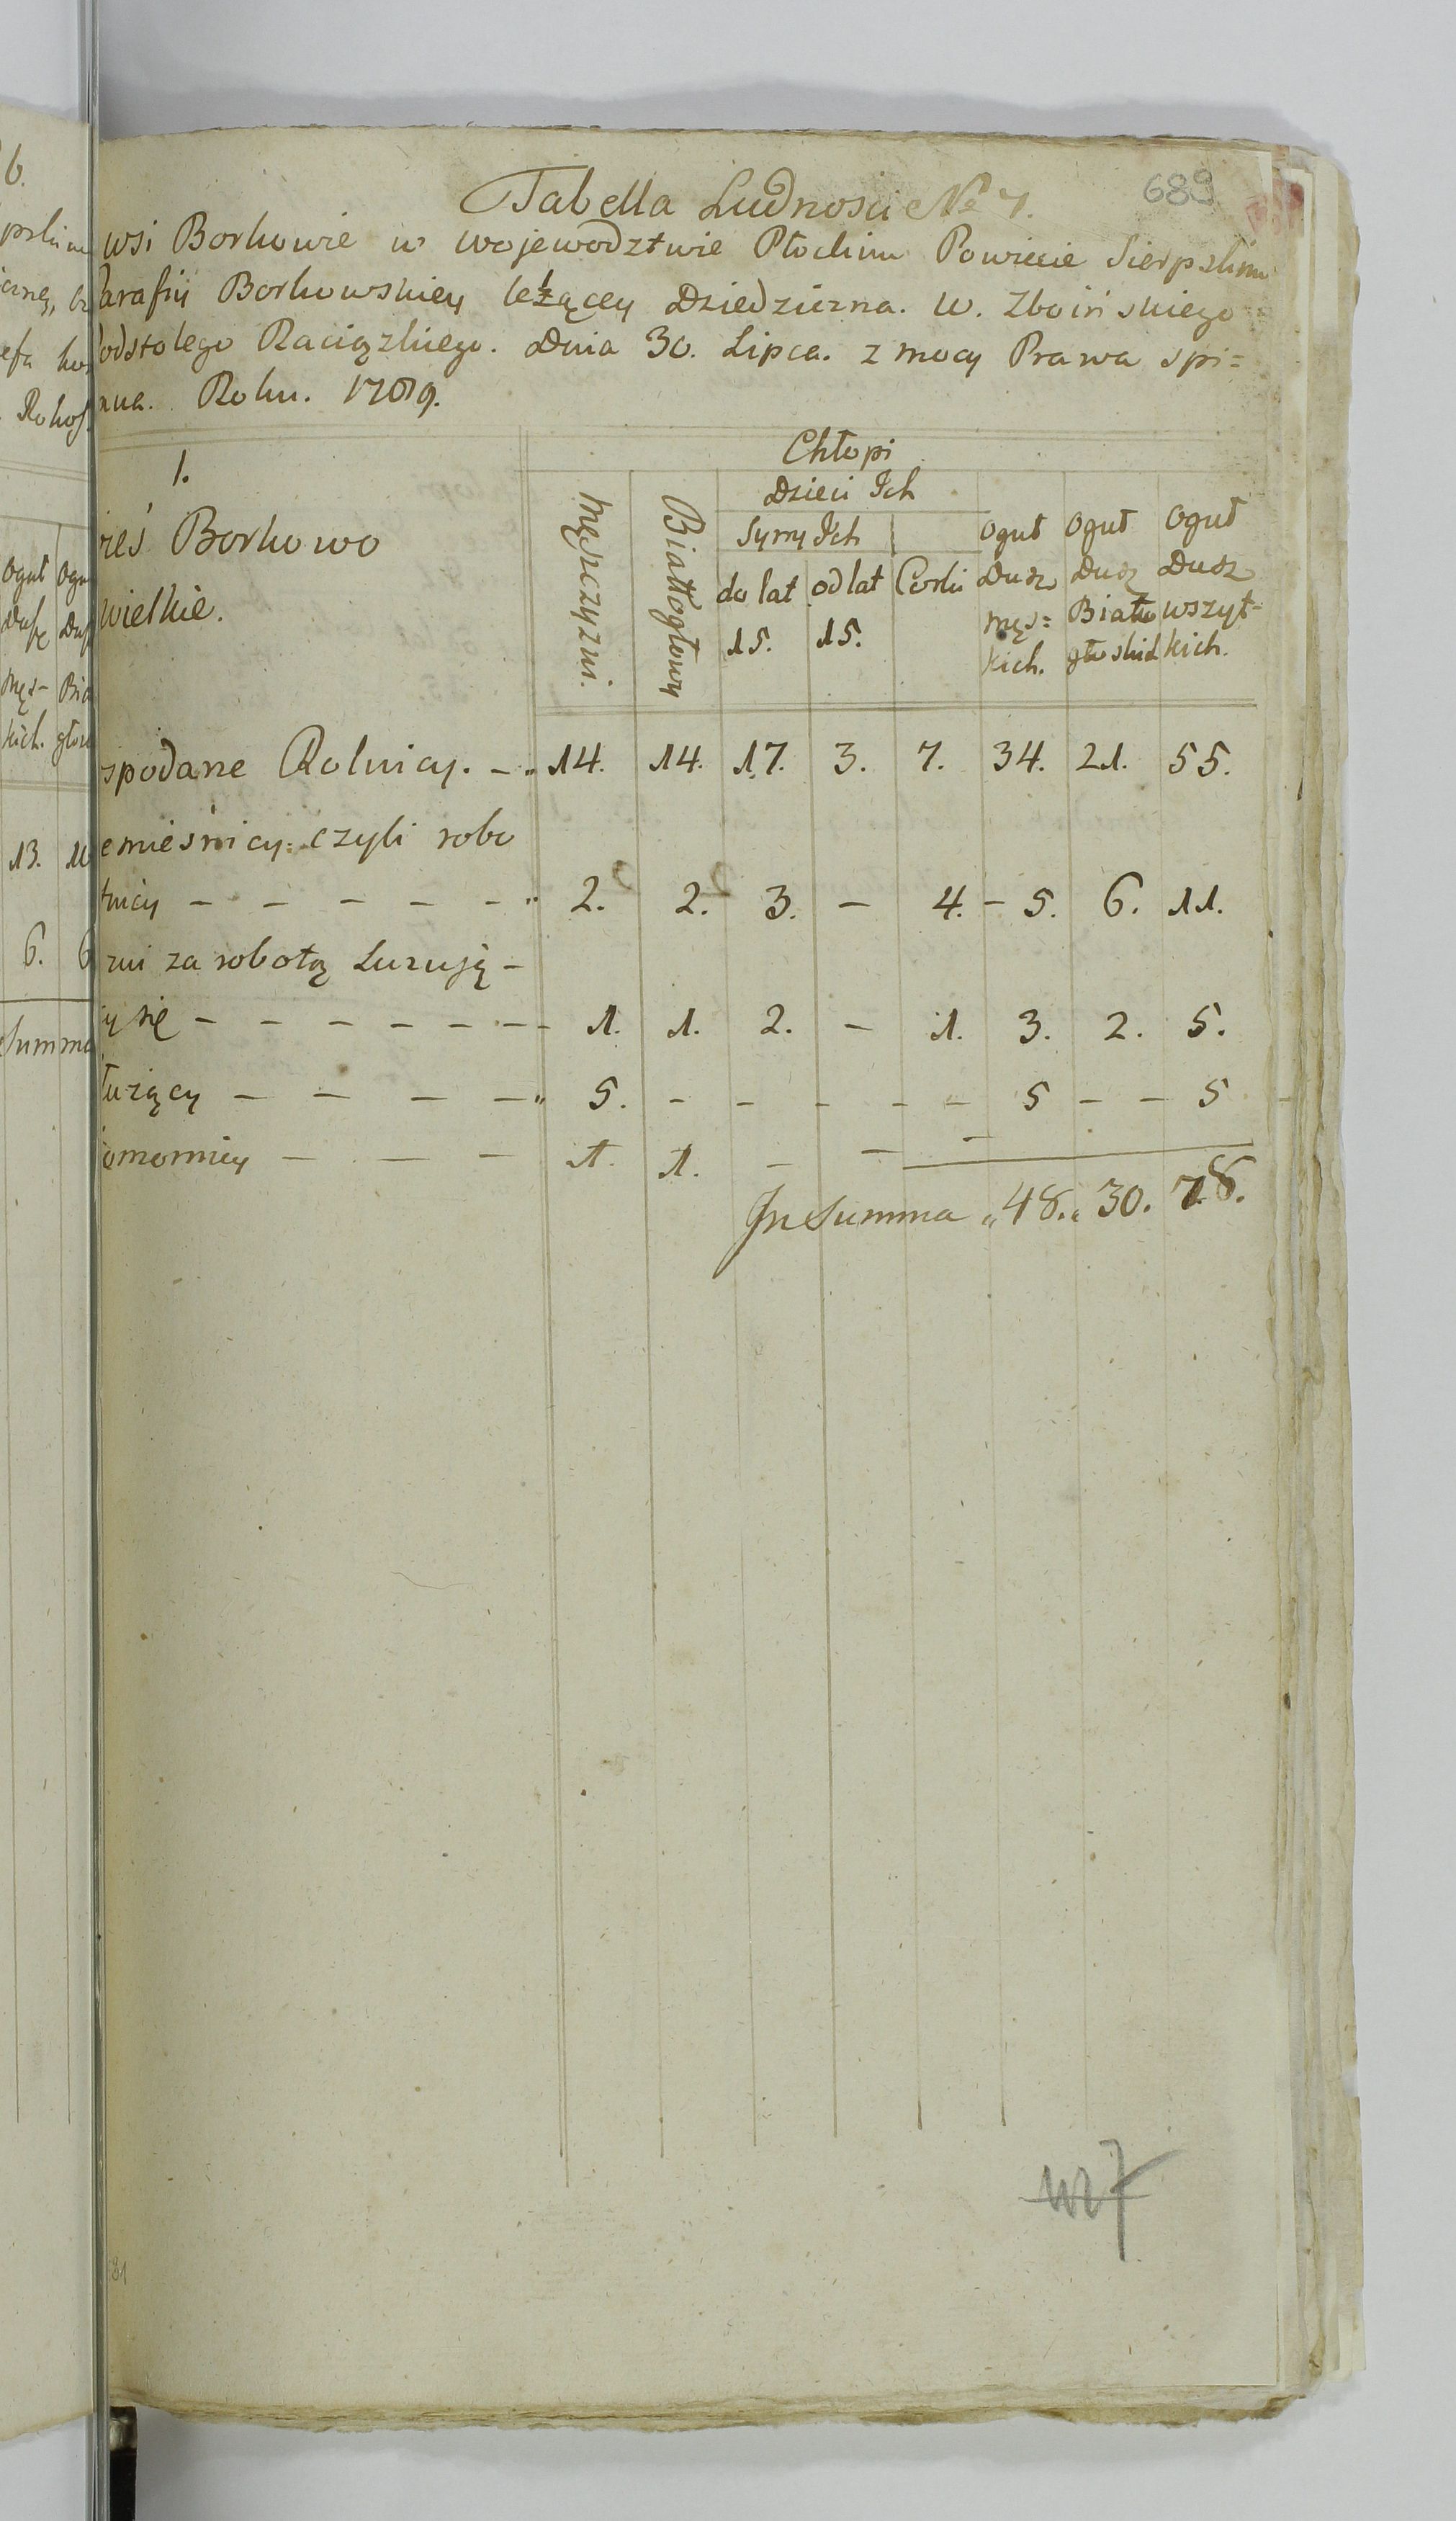 6.
Ogut Ogu
Dusz Dus
Męs- Bia
kich. głow
13.
6. 6
Summa
689
Tabella Ludnosci No 7.
wsi Borkowie w Wojewodztwie Płockim Powiecie Sierpskim
arafii Borkowskiey leżącey Dziedziczna. W. Zboińskiego
odstolego Raciązkiego. Dnia 30. Lipca. z mocy Prawa spi=
Roku. 1789.
1.
ieś Borkowo
wielkie.
Chłopi
Męszczyzni.
Białłogłowy
Dzieci Ich
Syny Ich
do lat 15.
od lat 15.
Corki
Ogut Dusz męs= kich.
Ogut Dusz Biało głoskich
Ogut Dusz wszyt= kich.
spodarze Rolnicy. - 14. 14. 17. 3. 7. 34. 21. 55.
emieśnicy czyli robo
tnicy - - - - - 2. 2. 3. - 4. - 5. 6. 11.
zni za robotą Luzują -
y się - - - - - - - 1. 1. 2. - 1. 3. 2. 5.
łużący - - - - 5. - - - - - 5 - - 5
omornicy - - - 1. 1. - - -
In Summa 48. 30. 78.